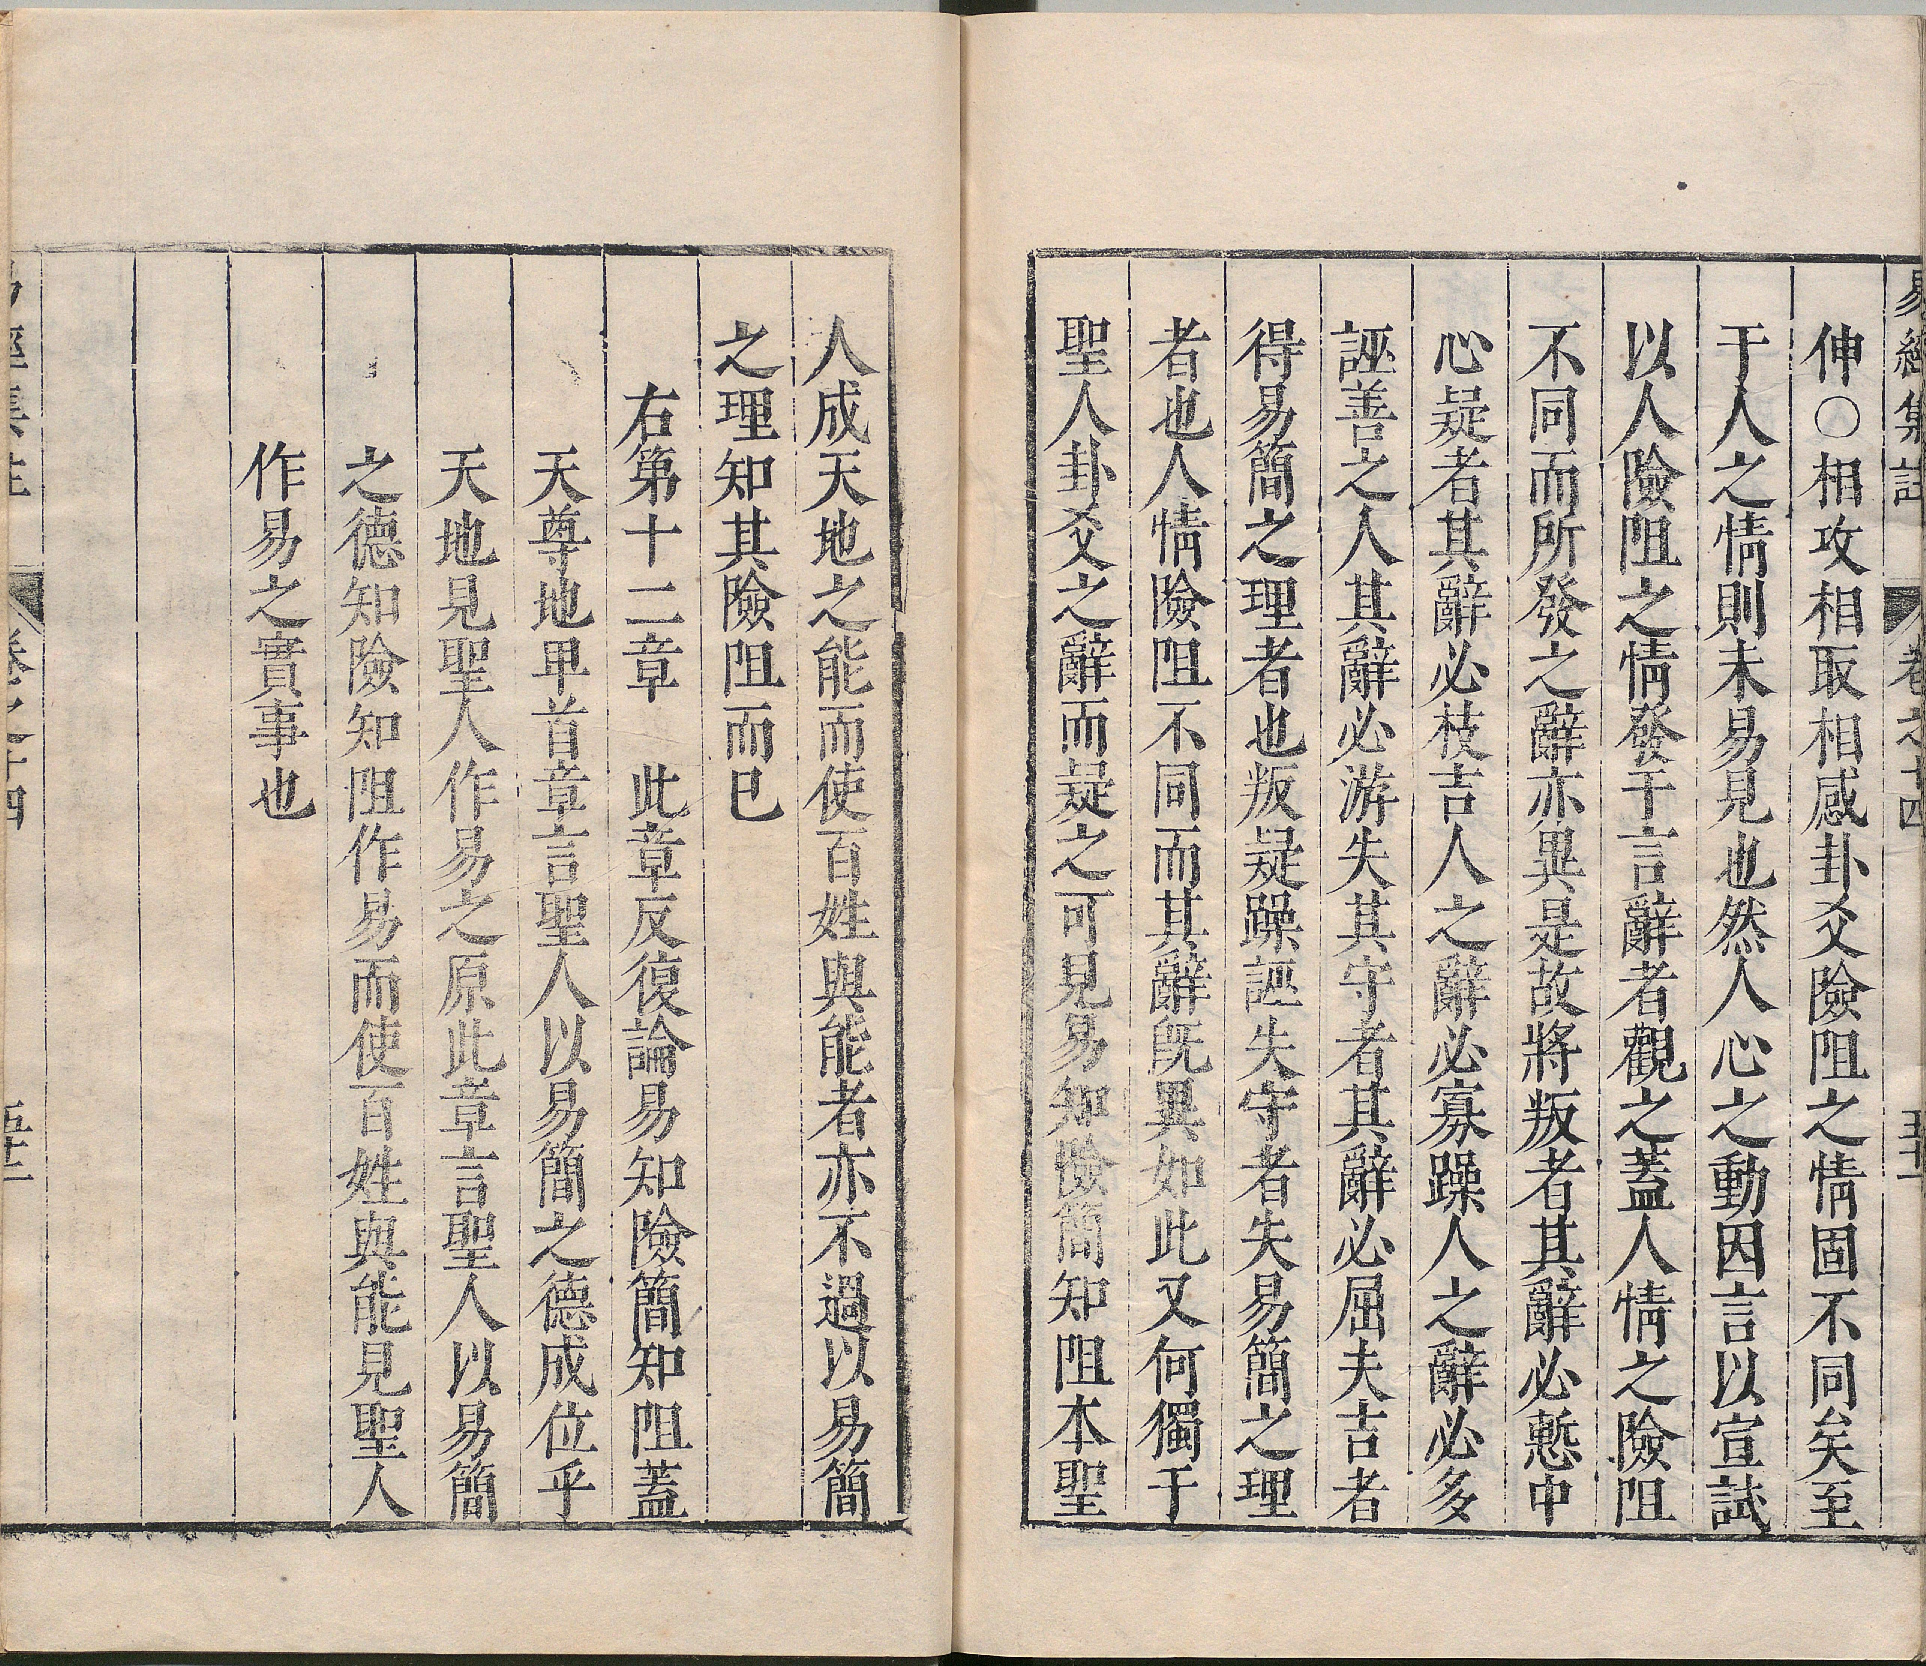 易經集註 卷之十四
伸○相攻相取相感卦爻險阻之情固不同矣至
于人之情則未易見也然人心之動因言以宣試
以人險阻之情發于言辭者觀之蓋人情之險阻
不同而所發之辭亦異是故將叛者其辭必慙中
心疑者其辭必枝吉人之辭必寡躁人之辭必多
誣善之人其辭必游失其守者其辭必屈夫吉者
得易簡之理者也叛疑躁誣失守者失易簡之理
者也人情險阻不同而其辭旣異如此又何獨于
聖人卦爻之辭而疑之可見易知險簡知阻本聖
人成天地之能而使百姓與能者亦不過以易簡
之理知其險阻而已
右第十二章 此章反復論易知險簡知阻蓋
天尊地甲首章言聖人以易簡之德成位乎
天地見聖人作易之原此章言聖人以易簡
之德知險知阻作易而使百姓與能見聖人
作易之實事也
易經集註 卷之十四